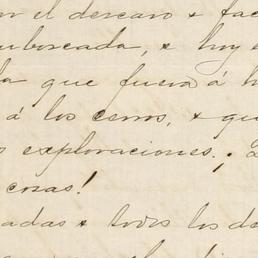 el descaro & fac
emboscada, & hoy e
la que fuera á h
á los cerros, & qu
exploraciones.
cosas!
adas & todos los de